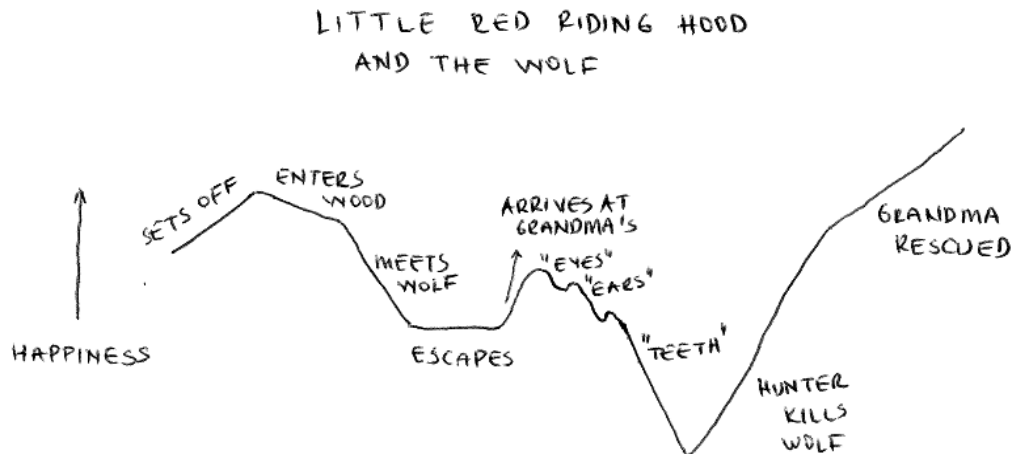 LITTLE RED RIDING HOOD
AND THE WOLF
SETS OFF
ENTERS
WOOD
MEETS
WOLF
ESCAPES
ARRIVES AT
GRANDMA'S
"EYES"
"EARS"
"TEETH"
HUNTER
KILLS
WOLF
GRANDMA
RESCUED
HAPPINESS